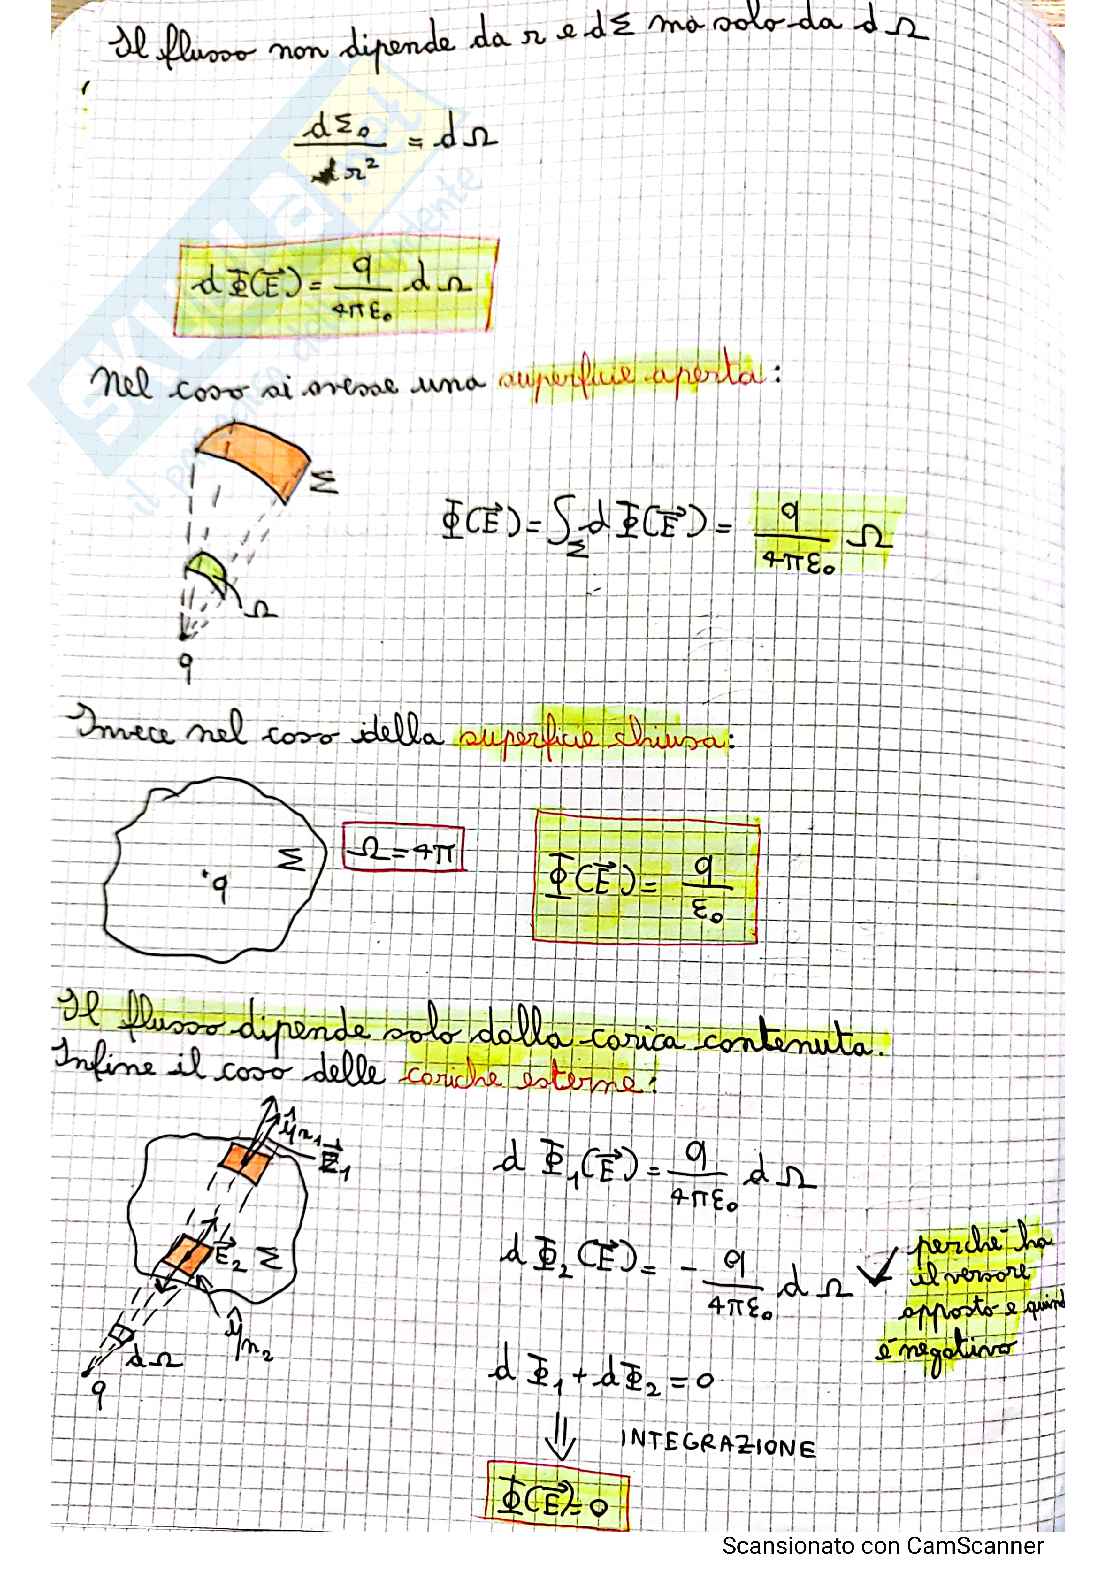 Il flusso non dipende da r e dΣ ma solo da dΩ
dΣ₀ / r² = dΩ
dΦ(E⃗) = q / 4πε₀ dΩ
Nel caso si avesse una superficie aperta:
Σ
Φ(E⃗) = ∫_Σ dΦ(E⃗) = q / 4πε₀ Ω
Ω
q
Invece nel caso della superficie chiusa:
Σ
q
Ω = 4π
Φ(E⃗) = q / ε₀
Il flusso dipende solo dalla carica contenuta.
Infine il caso delle cariche esterne:
û_n₁
E⃗₁
dΦ₁(E⃗) = q / 4πε₀ dΩ
E⃗₂ Σ
û_n₂
dΩ
q
dΦ₂(E⃗) = - q / 4πε₀ dΩ
perché ha
il versore
opposto e quindi
è negativo
dΦ₁ + dΦ₂ = 0
⇓ INTEGRAZIONE
Φ(E⃗) = 0
SKUOLA.net
Scansionato con CamScanner